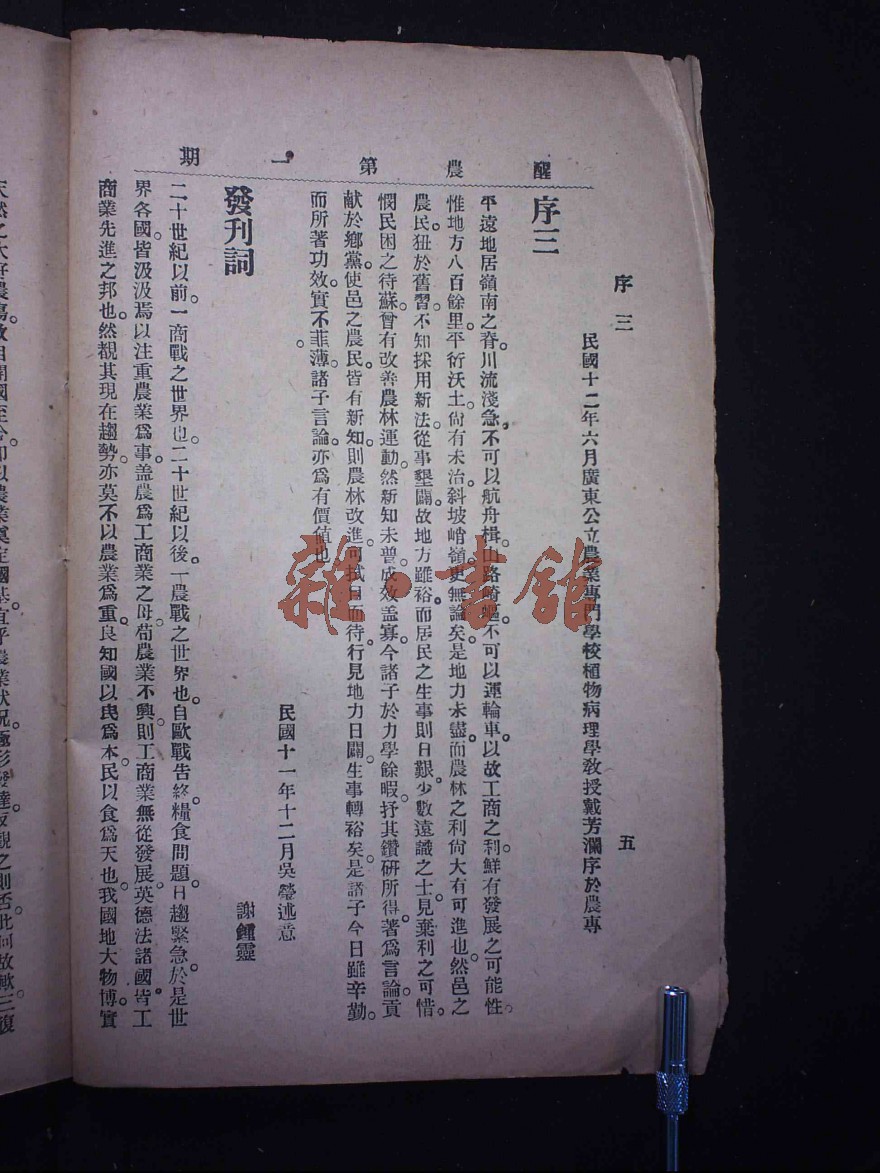 醒農第一期
序三
五
民國十二年六月廣東公立農業專門學校植物病理學教授戴芳瀾序於農專
序三
平遠地居嶺南之脊。川流淺急。不可以航舟楫。山路崎嶇。不可以運輪車。以故工商之利。鮮有發展之可能性。
惟地方八百餘里。平衍沃土。尙有未治。斜坡峭嶺。更無論矣。是地力未盡。而農林之利。尙大有可進也。然邑之
農民。狃於舊習。不知採用新法。從事墾闢。故地方雖裕。而居民之生事則日艱。少數遠識之士。見棄利之可惜。
憫民困之待蘇。曾有改善農林運動。然新知未普。成效盖寡。今諸子於力學餘暇。抒其鑽研所得。著爲言論。貢
献於鄉黨。使邑之農民。皆有新知。則農林改進。可拭目而待。行見地力日闢。生事轉裕矣。是諸子今日雖辛勤。
而所著功效。實不菲薄。諸子言論。亦爲有價値也。
民國十一年十二月吳瑩述意
發刊詞
謝鍾靈
二十世紀以前。一商戰之世界也。二十世紀以後。一農戰之世界也。自歐戰告終。糧食問題。日趨緊急。於是世
界各國。皆汲汲焉以注重農業爲事。盖農爲工商業之母。苟農業不興。則工商業無從發展。英德法諸國。皆工
商業先進之邦也。然覩其現在趨勢。亦莫不以農業爲重。良知國以民爲本。民以食爲天也。我國地大物博。實
天然之大好農塲。故自開國至今。卽以農業奠定國基。宜乎農業狀况。極形發達。反觀之則否。此何故歟。三復